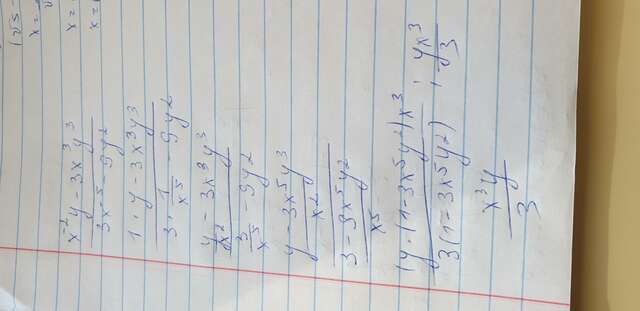 (√5 -
x =
x =
x^-2 y - 3x^3 y^3 / 3x^-5 - 9y^2
1 · y - 3x^3 y^3 / 3 · 1/x^5 - 9y^2
y/x^2 - 3x^3 y^3 / 3/x^5 - 9y^2
y - 3x^5 y^3 / x^2
3 - 9x^5 y^2 / x^5
(y · (1 - 3x^5 y^2) x^3 / 3(1 - 3x^5 y^2) ; yx^3 / 3
x^3 y / 3